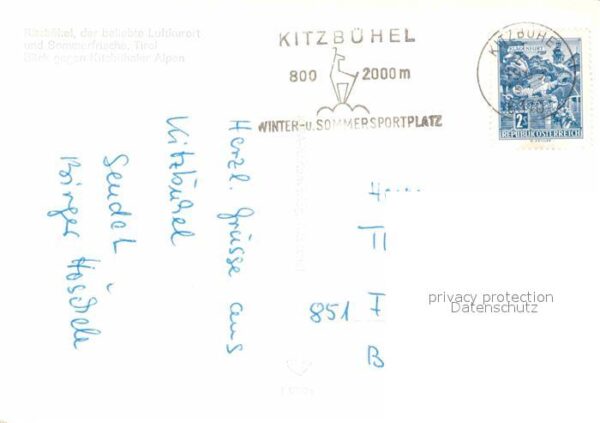 Kitzbühel, der beliebte Luftkurort
und Sommerfrische, Tirol
Blick gegen Kitzbüheler Alpen
KITZBÜHEL
800 2000 m
WINTER-u. SOMMERSPORTPLATZ
KITZBÜHEL
KLAGENFURT
2S
REPUBLIK ÖSTERREICH
Herzl. Grüsse aus
Kitzbühel
sendet
H
II
851 F
B
privacy protection
Datenschutz